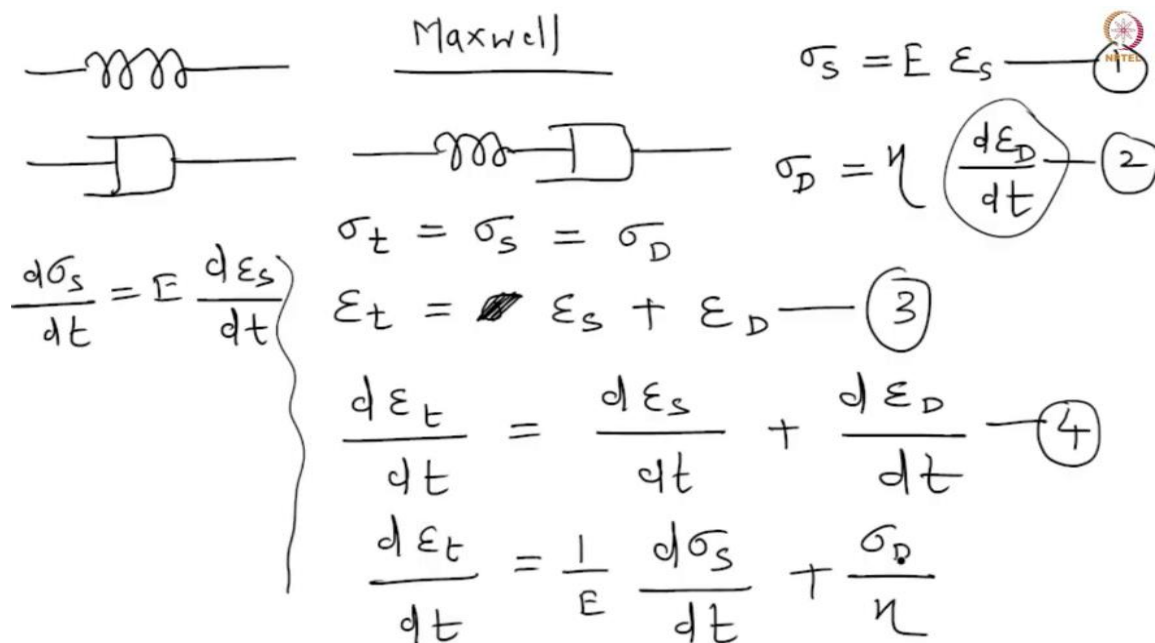 Maxwell
σ_S = E ε_S — 1
σ_D = η dε_D/dt — 2
σ_t = σ_S = σ_D
dσ_S/dt = E dε_S/dt
ε_t = ε_S + ε_D — 3
dε_t/dt = dε_S/dt + dε_D/dt — 4
dε_t/dt = 1/E dσ_S/dt + σ_D/η
NPTEL